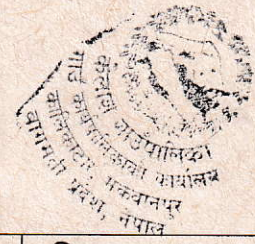 गाउँपालिका
गाउँ कार्यपालिकाको कार्यालय
मकवानपुर
बागमती प्रदेश, नेपाल